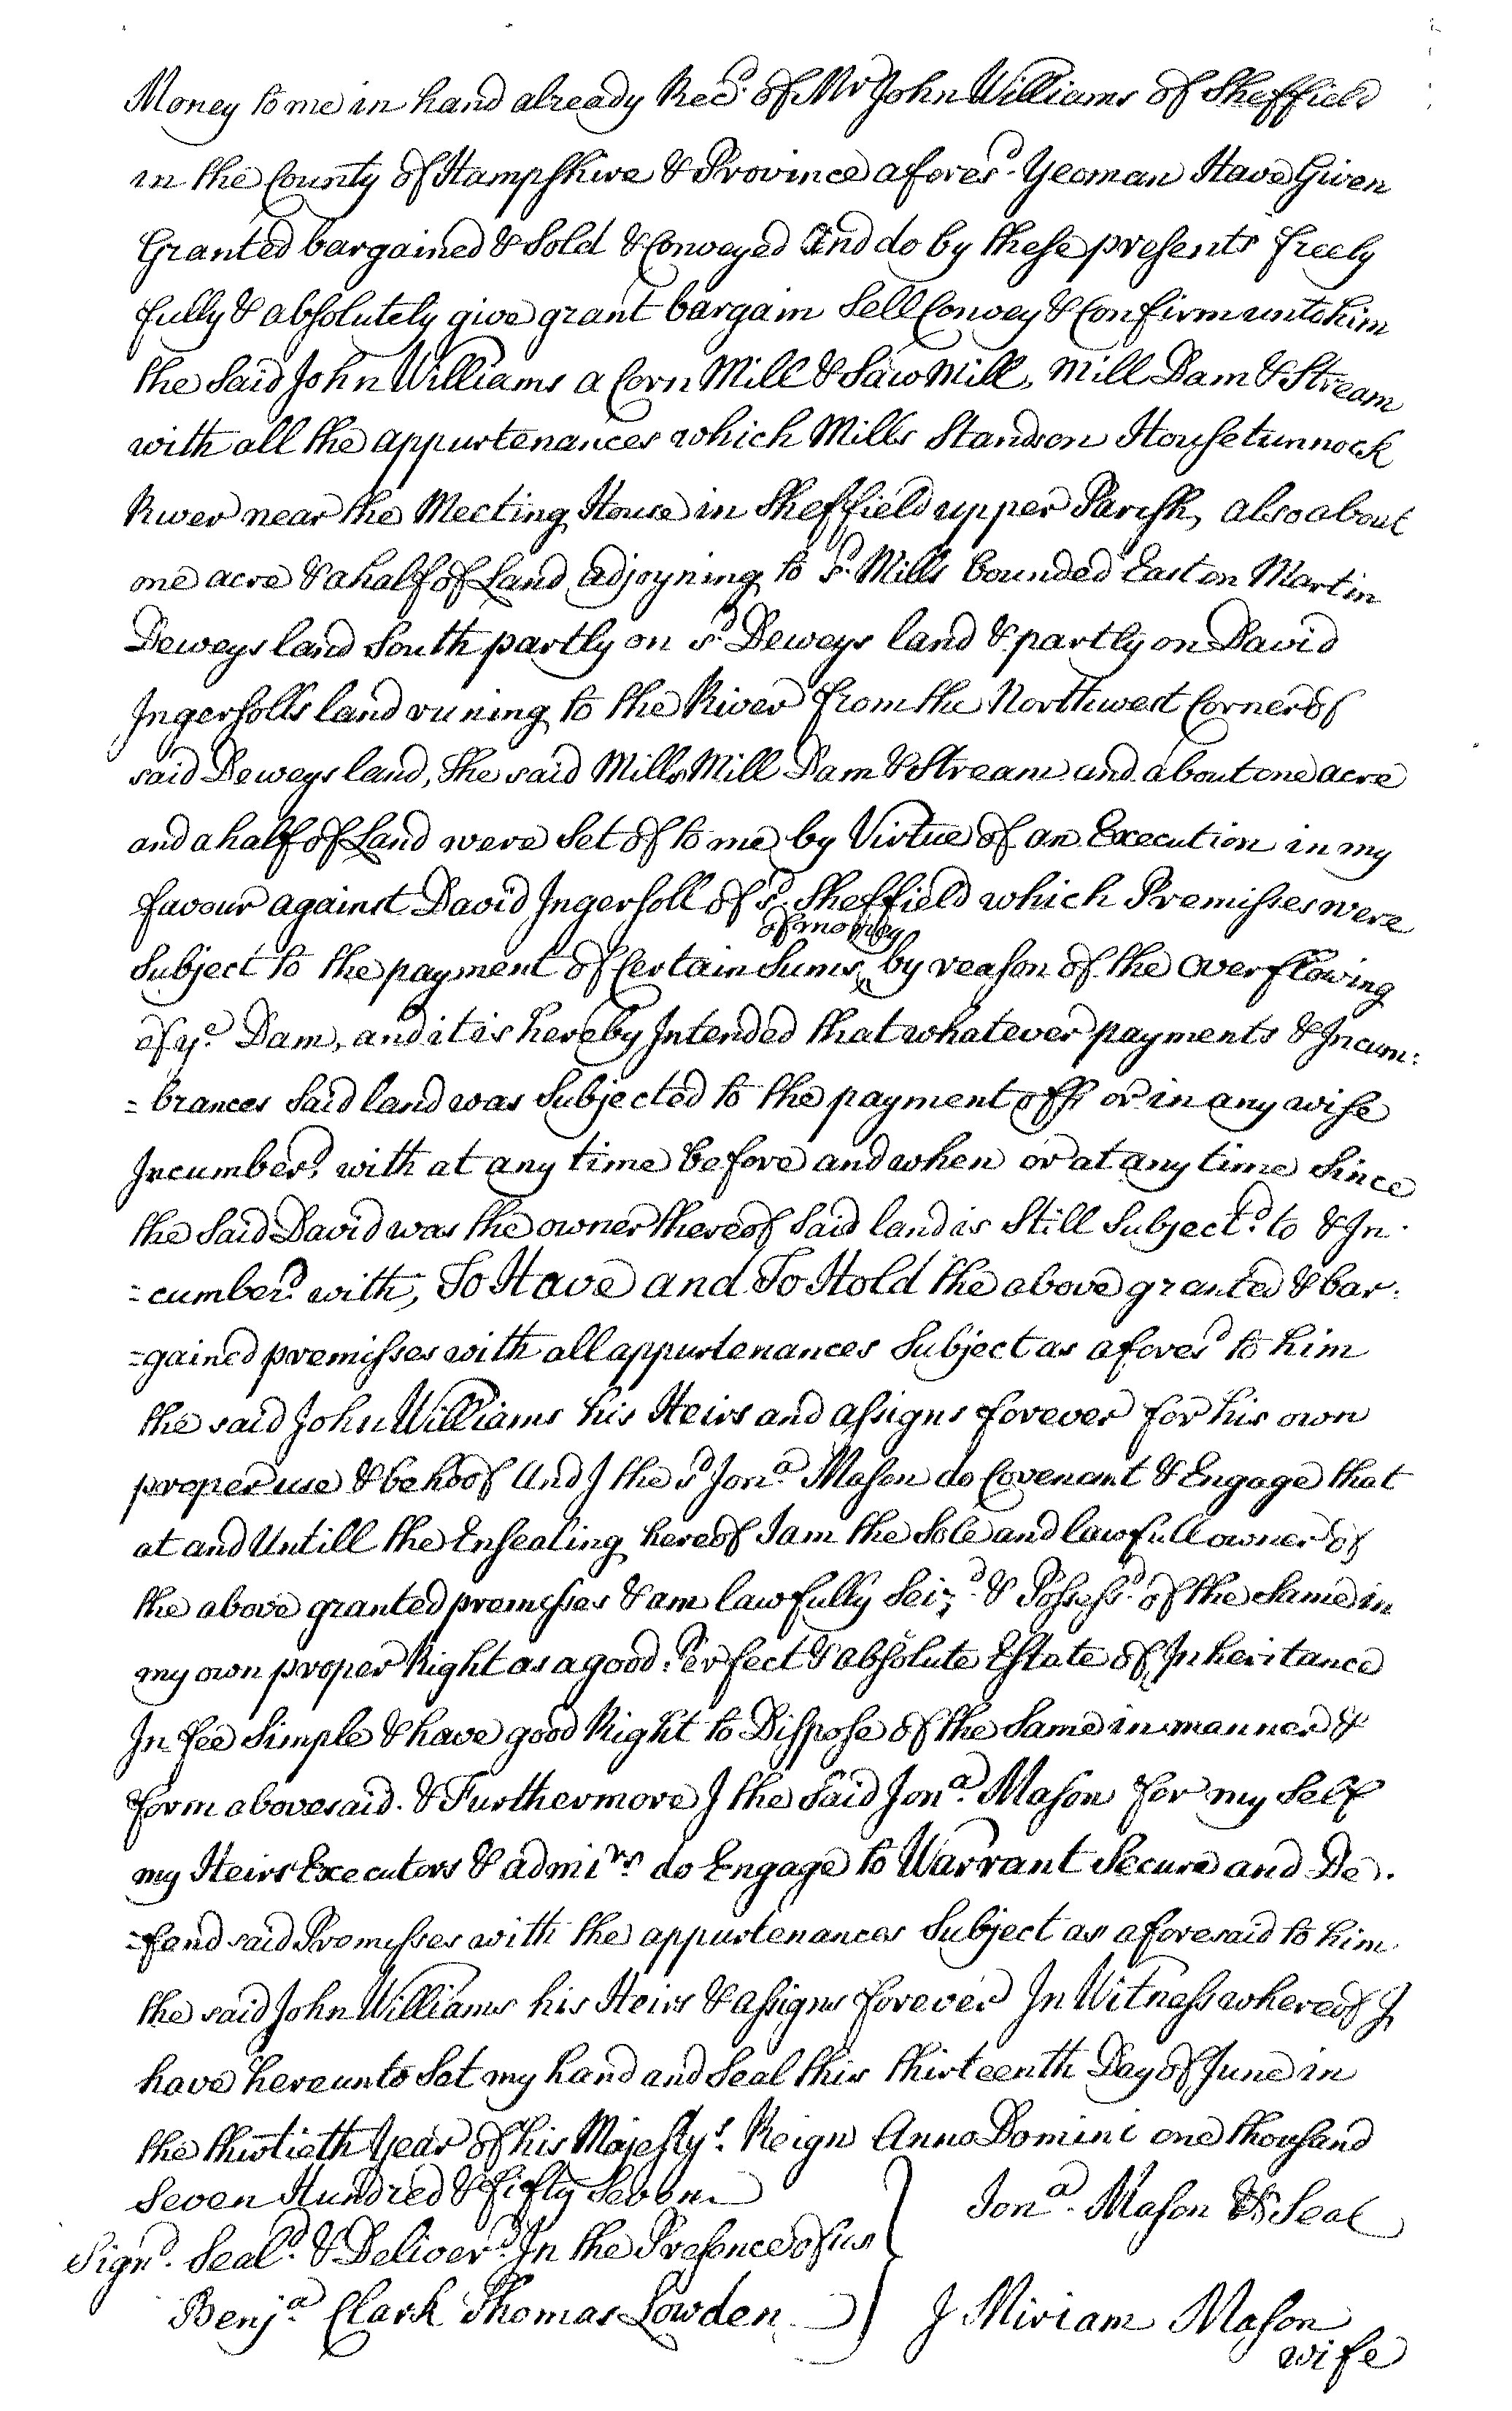 Money to me in hand already Recd. of Mr John Williams of Sheffield
in the County of Hampshire & Province aforesd. Yeoman Have Given
Granted bargained & Sold & Conveyed And do by these presents freely
fully & absolutely give grant bargain Sell Convey & Confirm unto him
the Said John Williams a Corn Mill & Saw Mill, Mill Dam & Stream
with all the appurtenances which Mills Stands on Housetunnock
River near the Meeting House in Sheffield upper Parish, also about
one acre & a half of Land adjoyning to sd. Mills bounded East on Martin
Deweys land South partly on sd. Deweys land & partly on David
Ingersolls land runing to the River from the Northwest Corner of
said Deweys land, The said Mills Mill Dam & Stream and about one acre
and a half of Land were Set of to me by Virtue of an Execution in my
favour against David Ingersoll of sd. Sheffield which Premisses were
of money
Subject to the payment of Certain Sums by reason of the overflowing
of ye. Dam, and it is hereby Intended that whatever payments & Incum:
=brances Said land was Subjected to the payment off or in any wise
Incumberd. with at any time before and when or at any time Since
the Said David was the owner thereof Said land is Still Subjectd. to & In
=cumberd. with, To Have and To Hold the above granted & bar:
=gained premisses with all appurtenances Subject as aforesd to him
the said John Williams his Heirs and assigns forever for his own
proper use & behoof And I the sd Jona. Mason do Covenant & Engage that
at and Untill the Ensealing hereof I am the Sole and lawfull owner of
the above granted premisses & am lawfully Seizd. & Possessd. of the Same in
my own proper Right as a good. Perfect & absolute Estate of Inheritance
In fee Simple & have good Right to Dispose of the Same in manner &
form abovesaid. & Furthermore I the Said Jona. Mason for my Self
my Heirs Executors & admirs do Engage to Warrant Secure and De.
=fend said Premisses with the appurtenances Subject as aforesaid to him
the said John Williams his Heirs & assigns forever In Witness whereof I
have hereunto Set my hand and Seal this thirteenth Day of June in
the thirtieth Year of his Majestys. Reign Anno Domini one thousand
Seven Hundred & Fifty Seven
Jona. Mason & Seal
Signd. Seald. & Deliverd. In the Presence of us
Benja. Clark Thomas Lowden
I Miriam Mason
wife